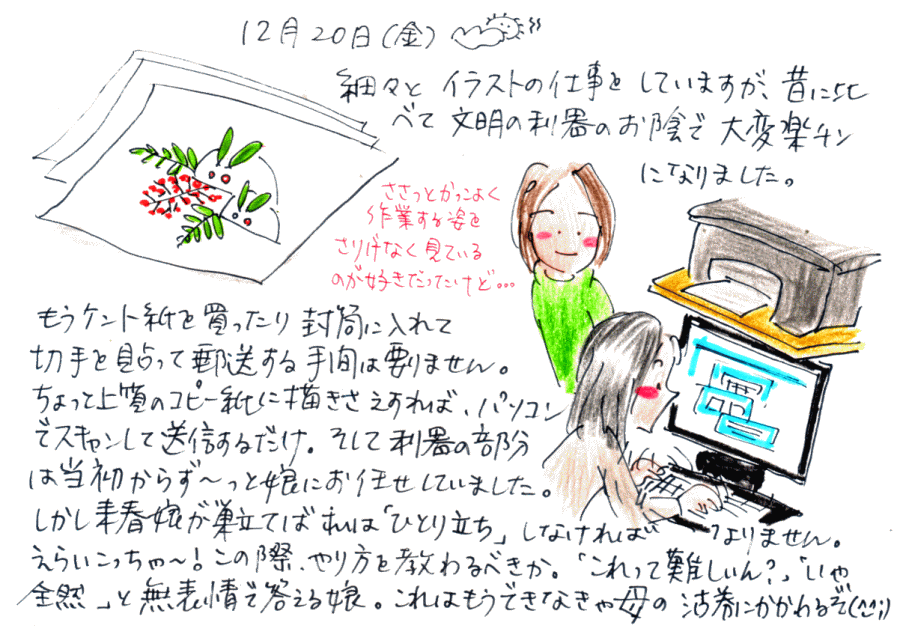 12月20日(金)
細々と イラストの仕事を していますが、昔に比
べて 文明の利器のお陰で 大変楽チン
になりました。
ささっとかっこよく
作業する姿を
さりげなく見ている
のが好きだったけど…
もうケント紙を買ったり 封筒に入れて
切手を貼って郵送する手間は要りません。
ちょっと上質のコピー紙に描きさえすれば、パソコン
でスキャンして送信するだけ。そして利器の部分
は当初からず〜っと娘にお任せしていました。
しかし来春娘が巣立てばれは「ひとり立ち」しなければ なりません。
えらいこっちゃ〜!この際、やり方を教わるべきか。「これって難しいん?」「いや
全然」と無表情で答える娘。これはもうできなきゃ母の 沽券にかかわるぞ(^^;)